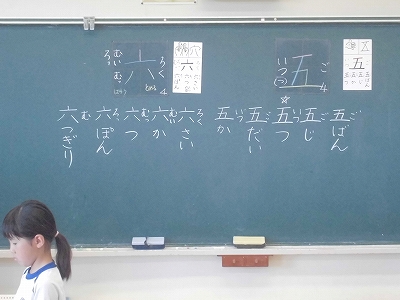 五
ご
いつ(つ)
4
五
五ばん
ご
五じ
ご
五つ
いつ
五だい
ご
五か
いつ
六
ろく
4
むい
六
六さい
ろく
六か
むい
六つ
むっ
六ぽん
ろっ
六つぎり
む